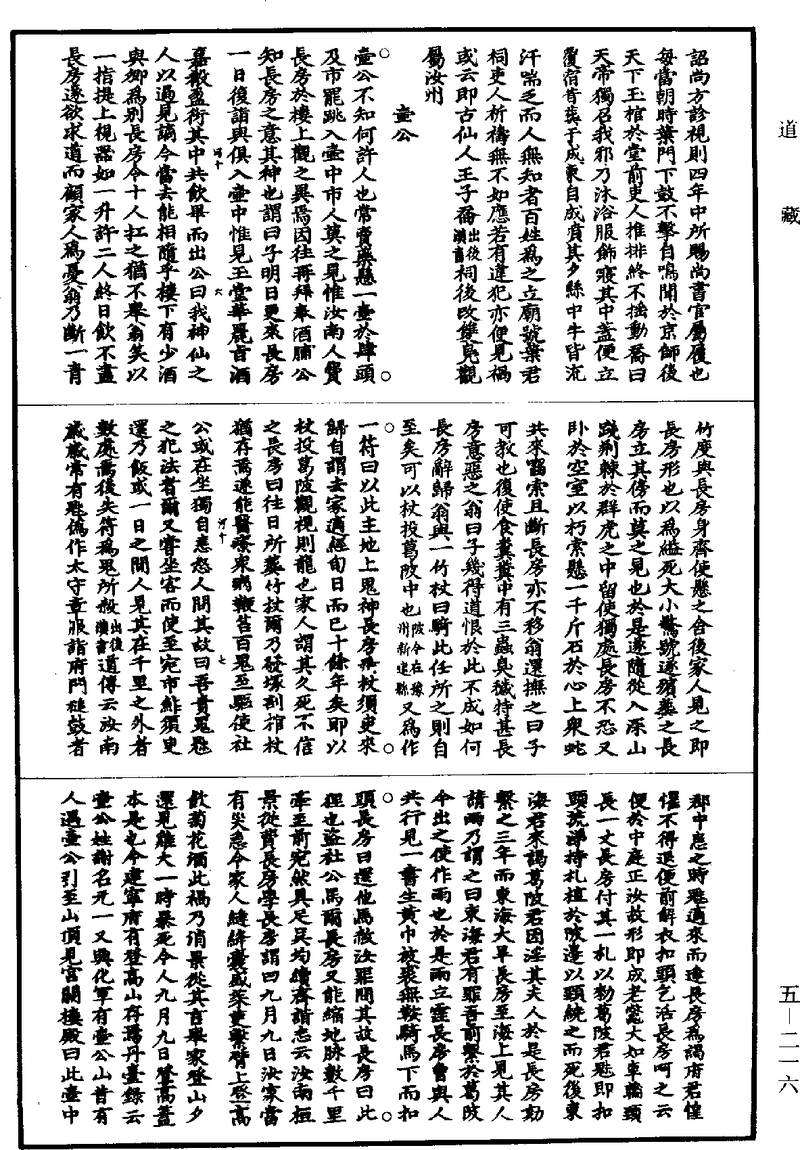 道藏
詔尚方診視則四年中所賜尚書官屬履也
每當朝時葉門下鼓不擊自鳴聞於京師後
天下玉棺於堂前吏人推排終不搖動喬曰
天帝獨召我邪乃沐浴服飾寢其中蓋便立
覆宿昔葬于成東自成墳其夕縣中牛皆流
汗喘乏而人無知者百姓為之立廟號葉君
祠吏人祈禱無不如應若有違犯亦便見禍
或云即古仙人王子喬出後漢書祠後改雙鳧觀
屬汝州
壺公
壺公不知何許人也常賣藥懸一壺於肆頭
及市罷跳入壺中市人莫之見惟汝南人費
長房於樓上觀之異焉因往再拜奉酒脯公
知長房之意其神也謂曰子明日更來長房
一日復詣與俱入壺中惟見玉堂華麗旨酒
嘉殽盈衍其中共飲畢而出公曰我神仙之
人以過見謫今當去能相隨乎樓下有少酒
與卿為別長房令十人扛之猶不舉翁笑以
一指提上視器如一升許二人終日飲不盡
長房遂欲求道而顧家人為憂翁乃斷一青
竹度與長房身齊使懸之舍後家人見之即
長房形也以為縊死大小驚號遂殯葬之長
房立其傍而莫之見也於是遂隨從入深山
踐荊棘於群虎之中留使獨處長房不恐又
臥於空室以朽索懸一千斤石於心上衆蛇
共來嚙索且斷長房亦不移翁還撫之曰子
可教也復使食糞糞中有三蟲臭穢特甚長
房意惡之翁曰子幾得道恨於此不成如何
長房辭歸翁與一竹杖曰騎此任所之則自
至矣可以杖投葛陂中也陂今在豫州新建縣又為作
一符曰以此主地上鬼神長房乘杖須臾來
歸自謂去家適經旬日而已十餘年矣即以
杖投葛陂觀視則龍也家人謂其久死不信
之長房曰往日所葬竹杖爾乃發塚剖棺杖
猶存焉遂能醫療衆病鞭笞百鬼至驅使社
公或在坐獨自恚怒人問其故曰吾責鬼魅
之犯法者爾又嘗坐客而使至宛市鮓須臾
還乃飯或一日之間人見其在千里之外者
數處焉後失符為鬼所殺出後漢書道傳云汝南
歲歲常有魅偽作太守章服詣府門槌鼓者
郡中患之時魅適來而逢長房為謁府君惶
懼不得退便前解衣扣頭乞活長房呵之云
便於中庭正汝故形即成老鼈大如車輪頸
長一丈長房付其一札以勑葛陂君魅即扣
頭流涕持札植於陂邊以頸繞之而死後東
海君來謁葛陂君因淫其夫人於是長房劾
繫之三年而東海大旱長房至海上見其人
請雨乃謂之曰東海君有罪吾前繫於葛陂
今出之使作雨也於是雨立霔長房曾與人
共行見一書生黃巾被裘無鞍騎馬下而扣
頭長房曰還他馬赦汝罪問其故長房曰此
狸也盜社公馬爾長房又能縮地脉數千里
牽至前宛然具足足均續齊諧志云汝南桓
景從費長房學長房謂曰九月九日汝家當
有災急令家人縫絳囊盛茱萸繫臂上登高
飲菊花酒此禍乃消景從其言舉家登山夕
還見雞犬一時暴死今人九月九日登高蓋
本是也今建寧府有登高山存焉丹臺錄云
壺公姓謝名元一又興化軍有壺公山昔有
人遇壺公引至山頂見宮闕樓殿曰此壺中
五—二一六